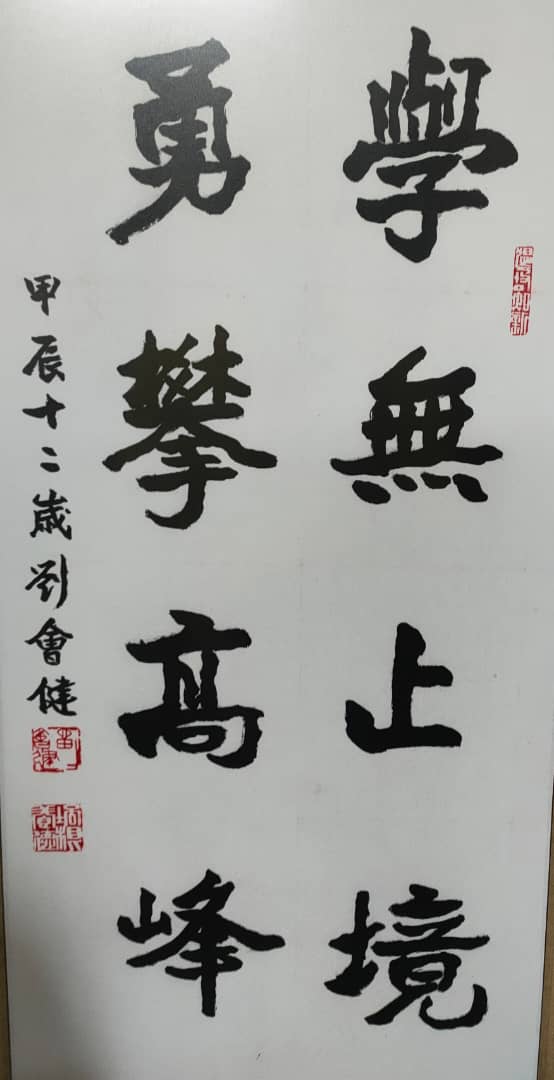 學無止境
勇攀高峰
甲辰十二歲劉會健
溫故知新